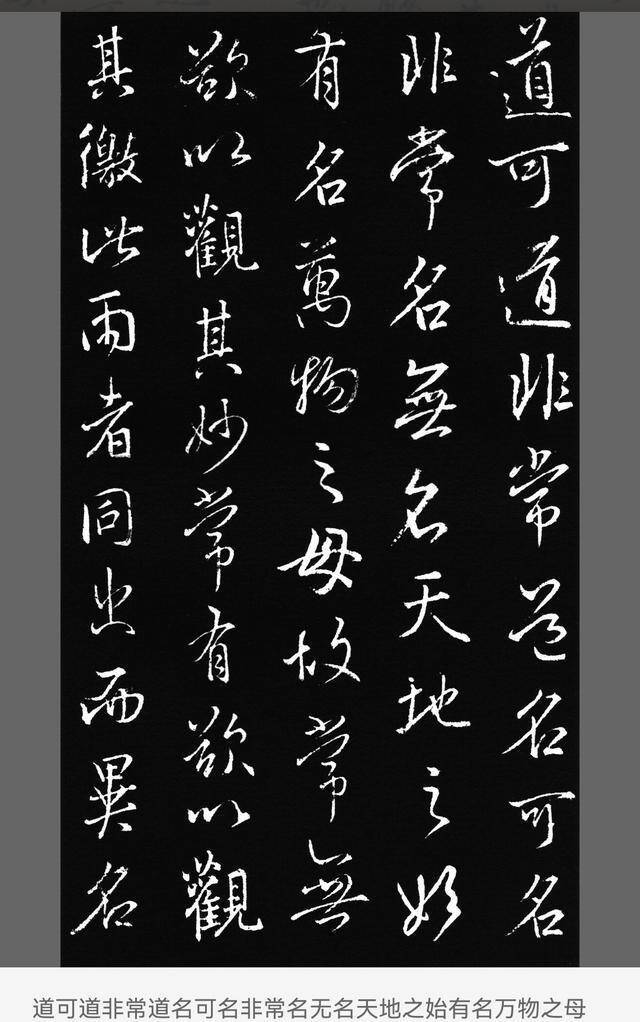 道可道非常道名可名
非常名無名天地之始
有名萬物之母故常無
欲以觀其妙常有欲以觀
其徼此兩者同出而異名
道可道非常道名可名非常名无名天地之始有名万物之母